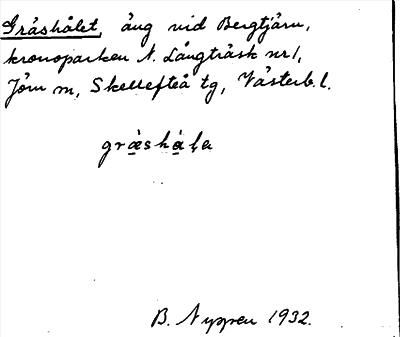 Gräshålet, äng vid Bergtjärn,
kronoparken N. Långträsk nr 1,
Jörn sn, Skellefteå tg, Västerb. l.
græshaḷa
B. Nyppen 1932.